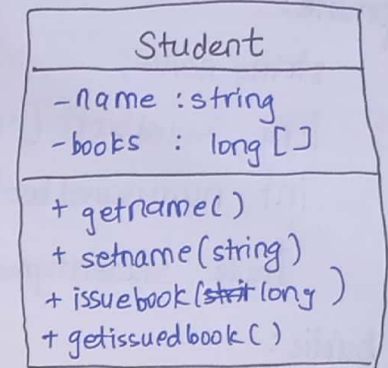 Student
-name : string
-books : long []
+ getname()
+ setname(string)
+ issuebook(long )
+ getissuedbook()